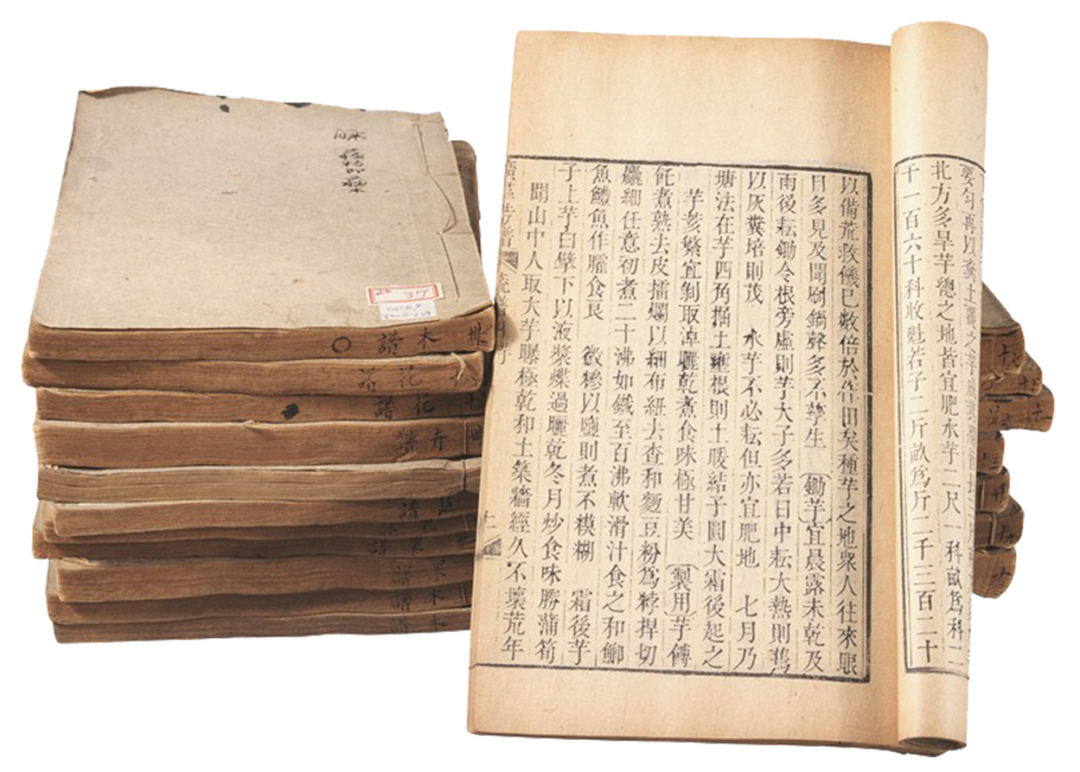 北方多旱芋總之地皆宜肥水芋二尺一科畝爲科二
千一百六十科收魁若子二斤畝爲斤二千三百二十
以備荒救饑已數倍於作田矣種芋之地衆人往來眼
目多見及聞刷鍋聲多不孳生 鋤芋宜晨露未乾及
雨後耘鋤令根旁虛則芋大子多若日中耘大熱則蔫
以灰糞培則茂 水芋不必耘但亦宜肥地 七月乃
塘法在芋四角掘土壅根則土暖結子圓大霜後起之
芋荄繁宜剝取淖曬乾煮食味極甘美 製用芋餺
飥煮熟去皮擂爛以細布紐去查和麵豆粉爲粰捍切
麤細任意初煮二十沸如鐵至百沸軟滑汁食之和鯽
魚鱧魚作臛食良 微糝以鹽則煮不糢糊 霜後芋
子上芋白擘下以液漿煠過曬乾冬月炒食味勝蒲筍
聞山中人取大芋曝極乾和土築牆經久不壞荒年
廣羣芳譜
十一
木
譜
花
譜
花
譜
卉
譜
木
譜